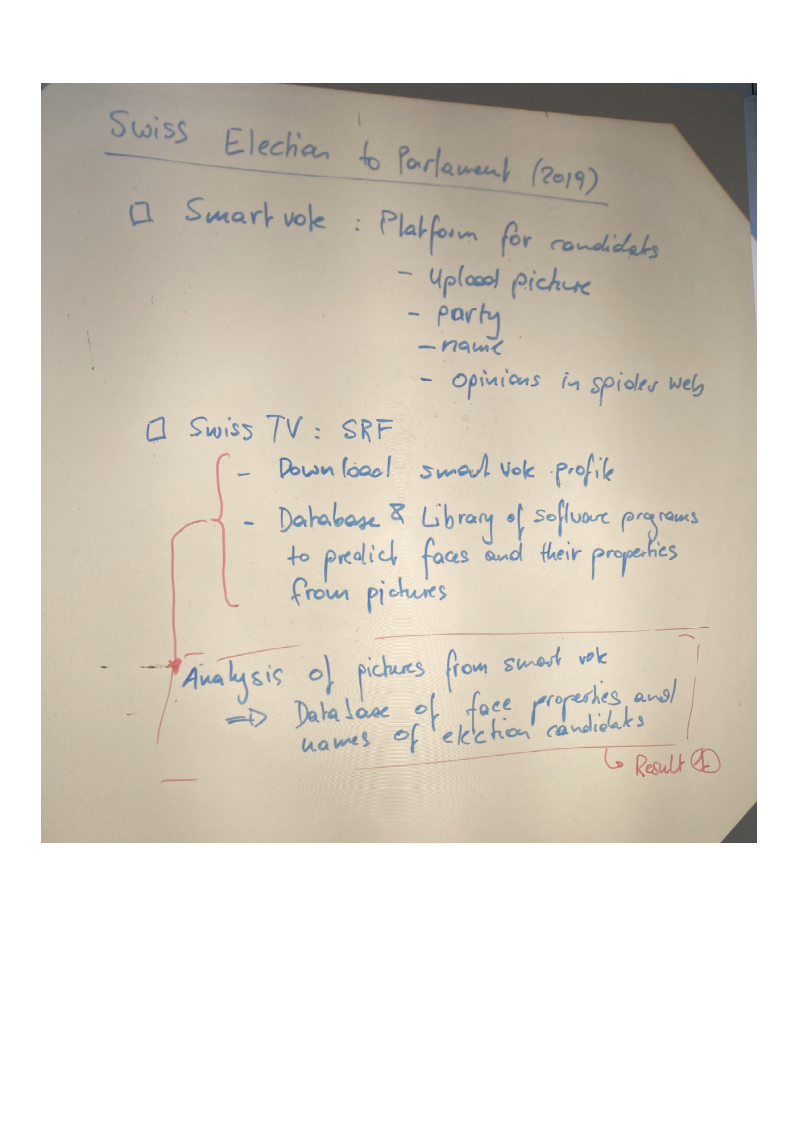 Swiss Election to Parlament (2019)
□ Smartvote : Platform for candidats
- upload picture
- party
- name
- opinions in spider web
□ Swiss TV : SRF
- Download smart vote profile
- Database & Library of software prgrams
to predict faces and their properties
from pictures
Analysis of pictures from smart vote
⇒ Database of face properties and
names of election candidats
↳ Result ①